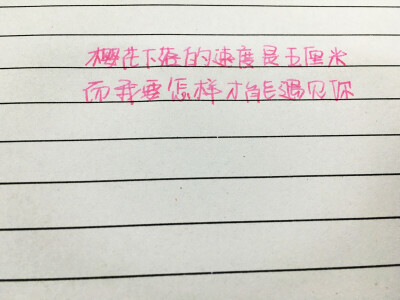 樱花下落的速度是五厘米
而我要怎样才能遇见你